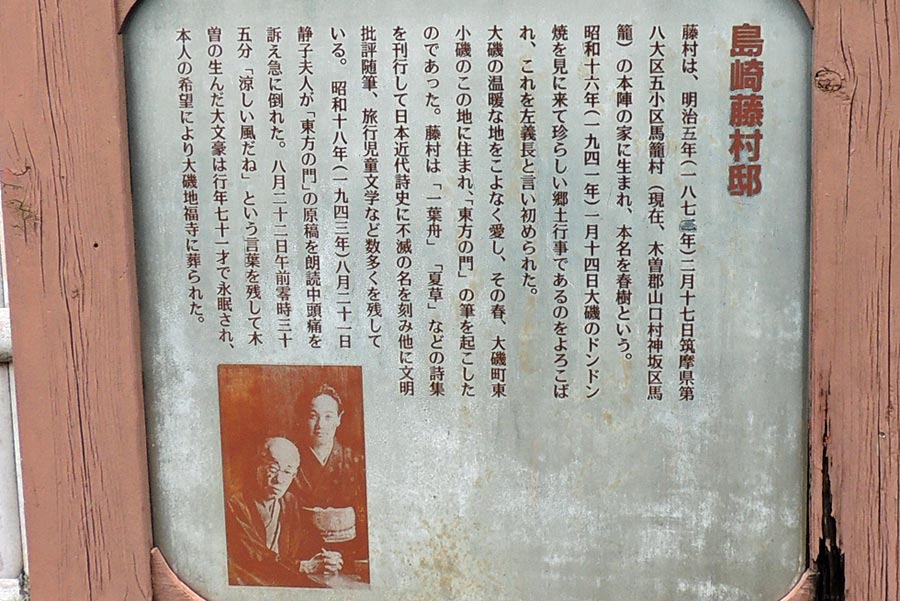 島崎藤村邸
藤村は、明治五年(一八七二年)二月十七日筑摩県第
八大区五小区馬籠村(現在、木曽郡山口村神坂区馬
籠)の本陣の家に生まれ、本名を春樹という。
昭和十六年(一九四一年)一月十四日大磯のドンドン
焼を見に来て珍らしい郷土行事であるのをよろこば
れ、これを左義長と言い初められた。
大磯の温暖な地をこよなく愛し、その春、大磯町東
小磯のこの地に住まれ、「東方の門」の筆を起こした
のであった。藤村は「一葉舟」「夏草」などの詩集
を刊行して日本近代詩史に不滅の名を刻み他に文明
批評随筆、旅行児童文学など数多くを残して
いる。昭和十八年(一九四三年)八月二十一日
静子夫人が「東方の門」の原稿を朗読中頭痛を
訴え急に倒れた。八月二十二日午前零時三十
五分「涼しい風だね」という言葉を残して木
曽の生んだ大文豪は行年七十一才で永眠され、
本人の希望により大磯地福寺に葬られた。